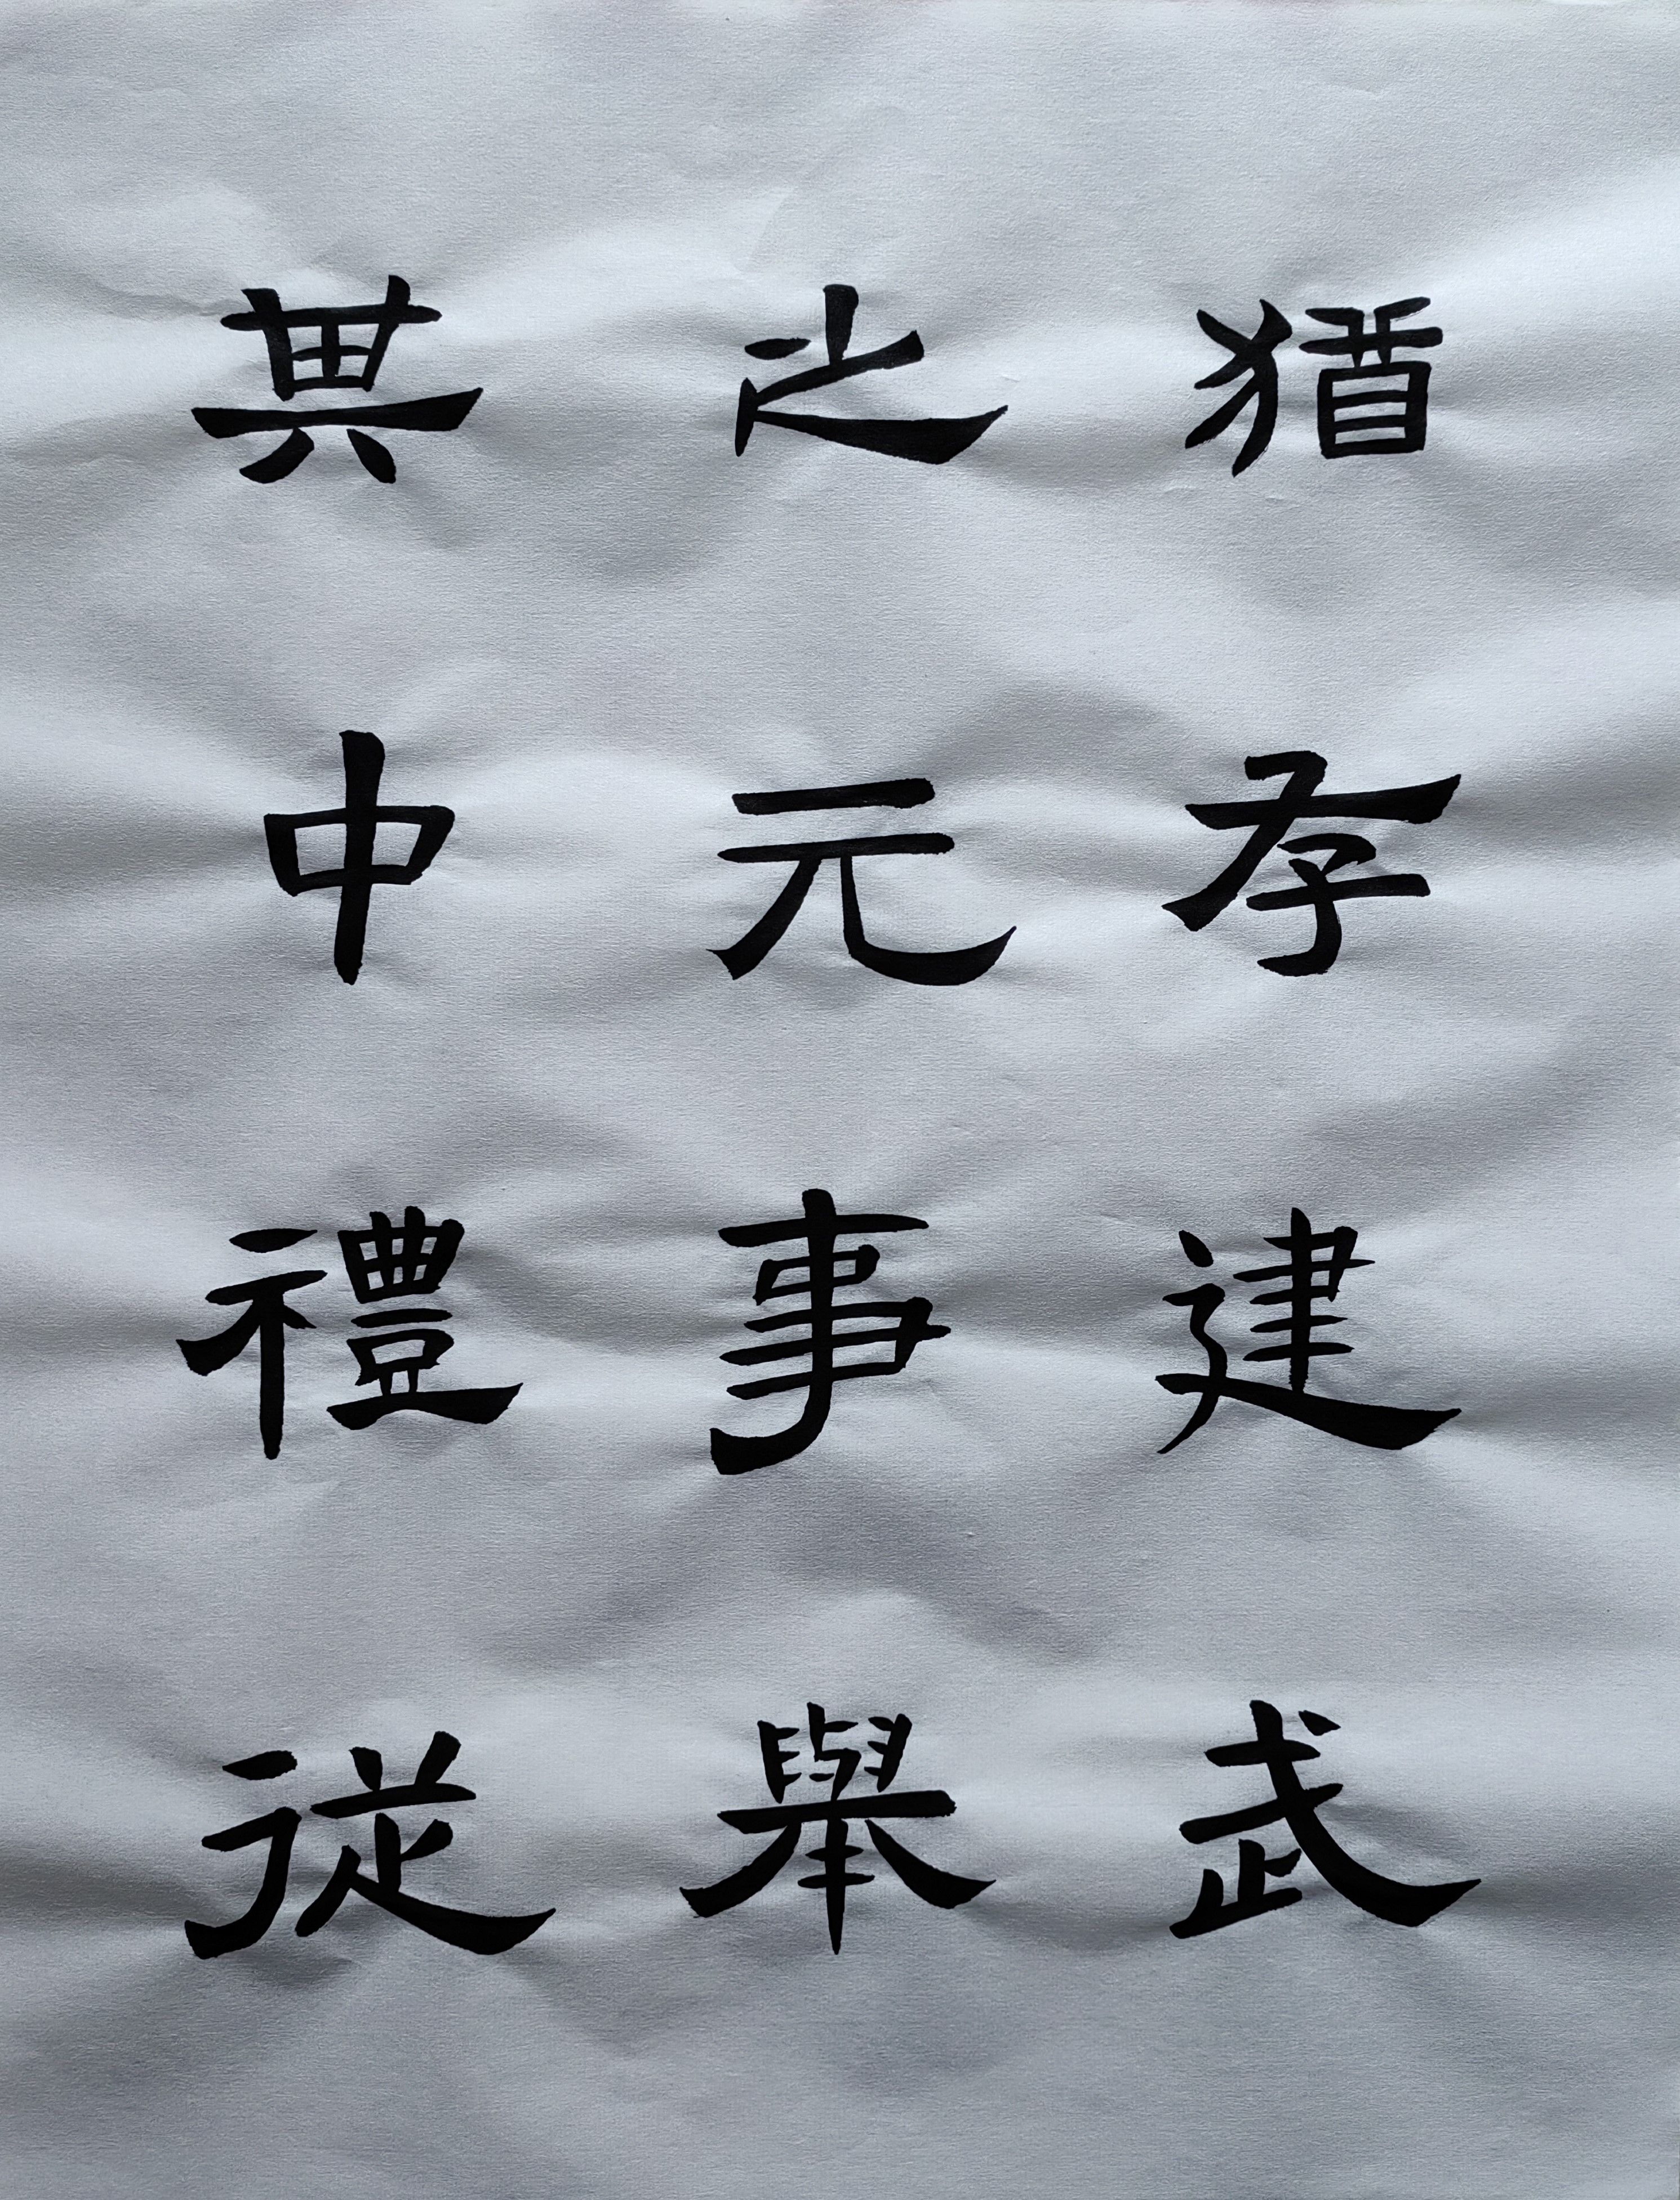 猶存建武
之元事舉
其中禮從